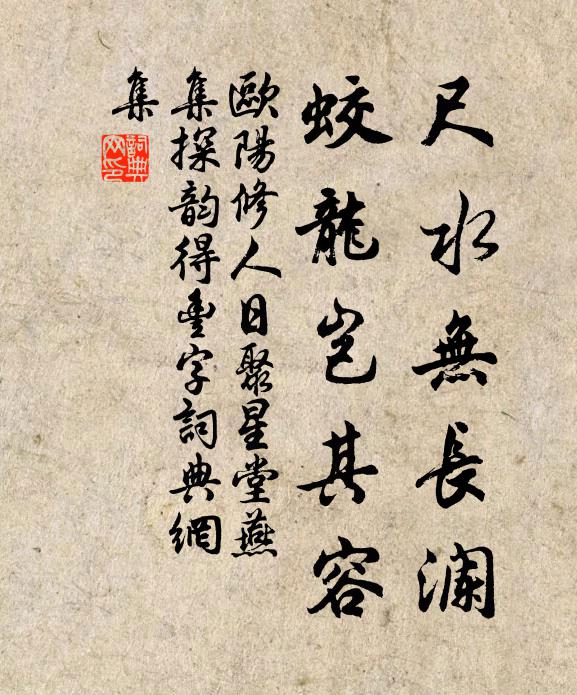 尺水無長澜
蛟龍岂其容
歐陽修人日聚星堂燕
集探韵得豊字詞典網
集
詞典
网印